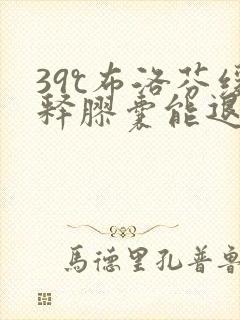 39℃布洛芬缓
释胶囊能退
馬德里孔普魯